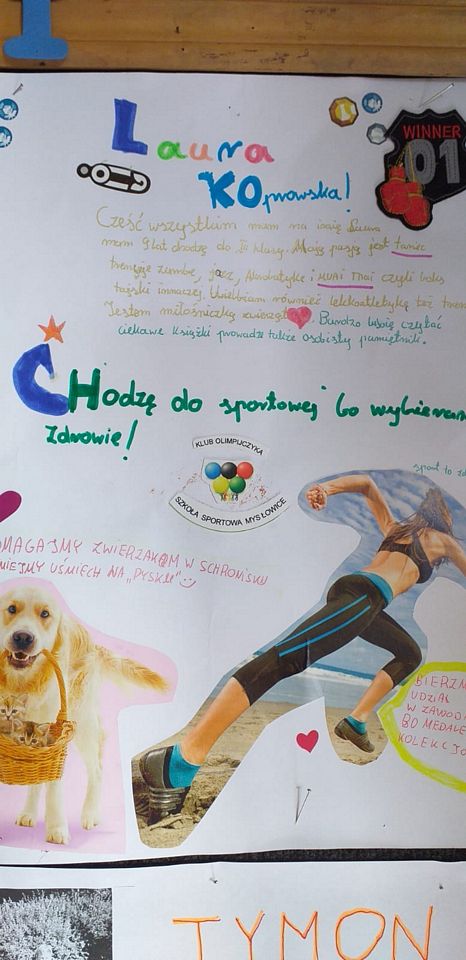 Laura
WINNER
01
KOprowska!
Cześć wszystkim mam na imię Laura
mam 9 lat chodzę do II klasy. Moją pasją jest taniec
trenuję zumbę, jazz, Akrobatykę i MUAI THAI czyli boks
tajski inaczej. Uwielbiam również lekkoatletykę też
Jestem miłośniczką zwierząt. Bardzo lubię czytać
ciekawe książki prowadzę także osobisty pamiętnik.
CHodzę do sportowej bo wybieram
Zdrowie!
KLUB OLIMPIJCZYKA
SZKOŁA SPORTOWA MYSŁOWICE
sport to
OMAGAJMY ZWIERZAKOM W SCHRONISKU
UŚMIECH NA „PYSKU”
BIERZM
UDZIAŁ
W ZAWODA
BO MEDALE
KOLEKCJO
TYMON